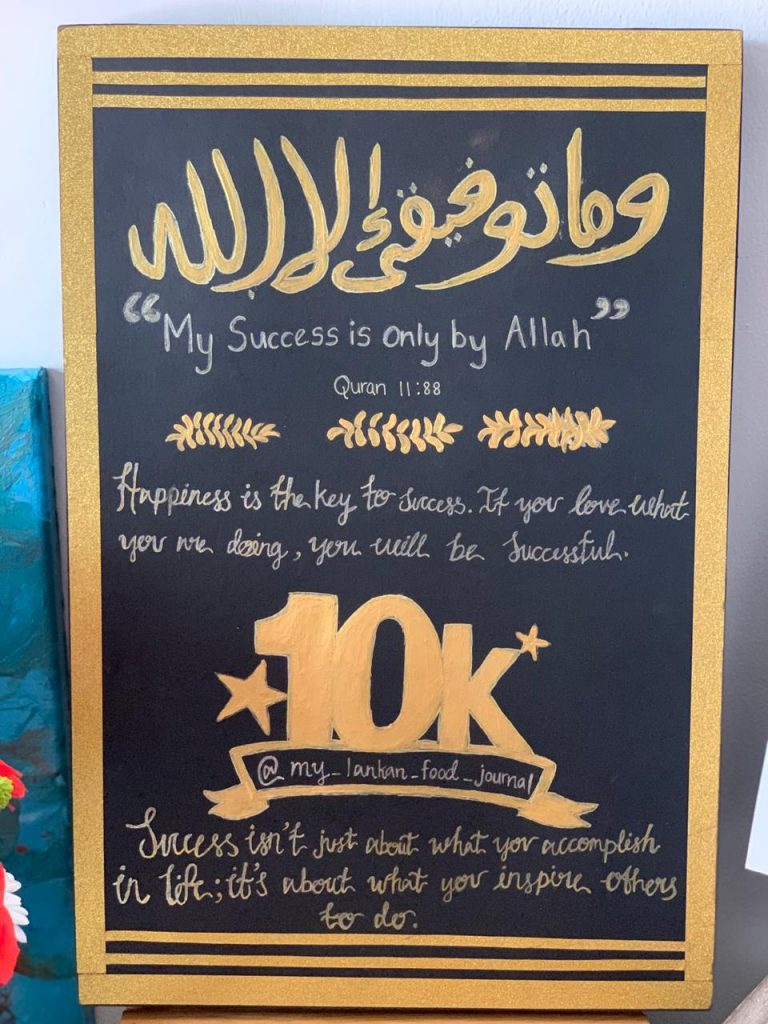 وما توفيقي إلا بالله
“My Success is only by Allah”
Quran 11:88
Happiness is the key to success. If you love what
you are doing, you will be successful.
10K
@my_lankan_food_journal
Success isn't just about what you accomplish
in life; it's about what you inspire others
to do.